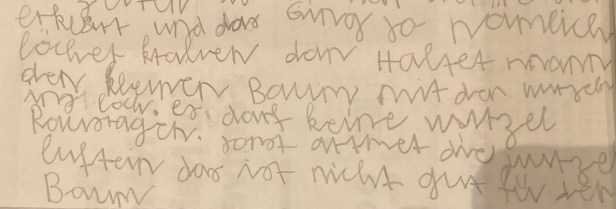 erklärt und das Ging so nämlich
löcher kraben dan Haltet mann
den kleinen Baum mit den wurzeln
ins loch. es darf keine wurzel
Rausragen. sonst attmet die wurzel
luft ein das ist nicht gut für den
Baum